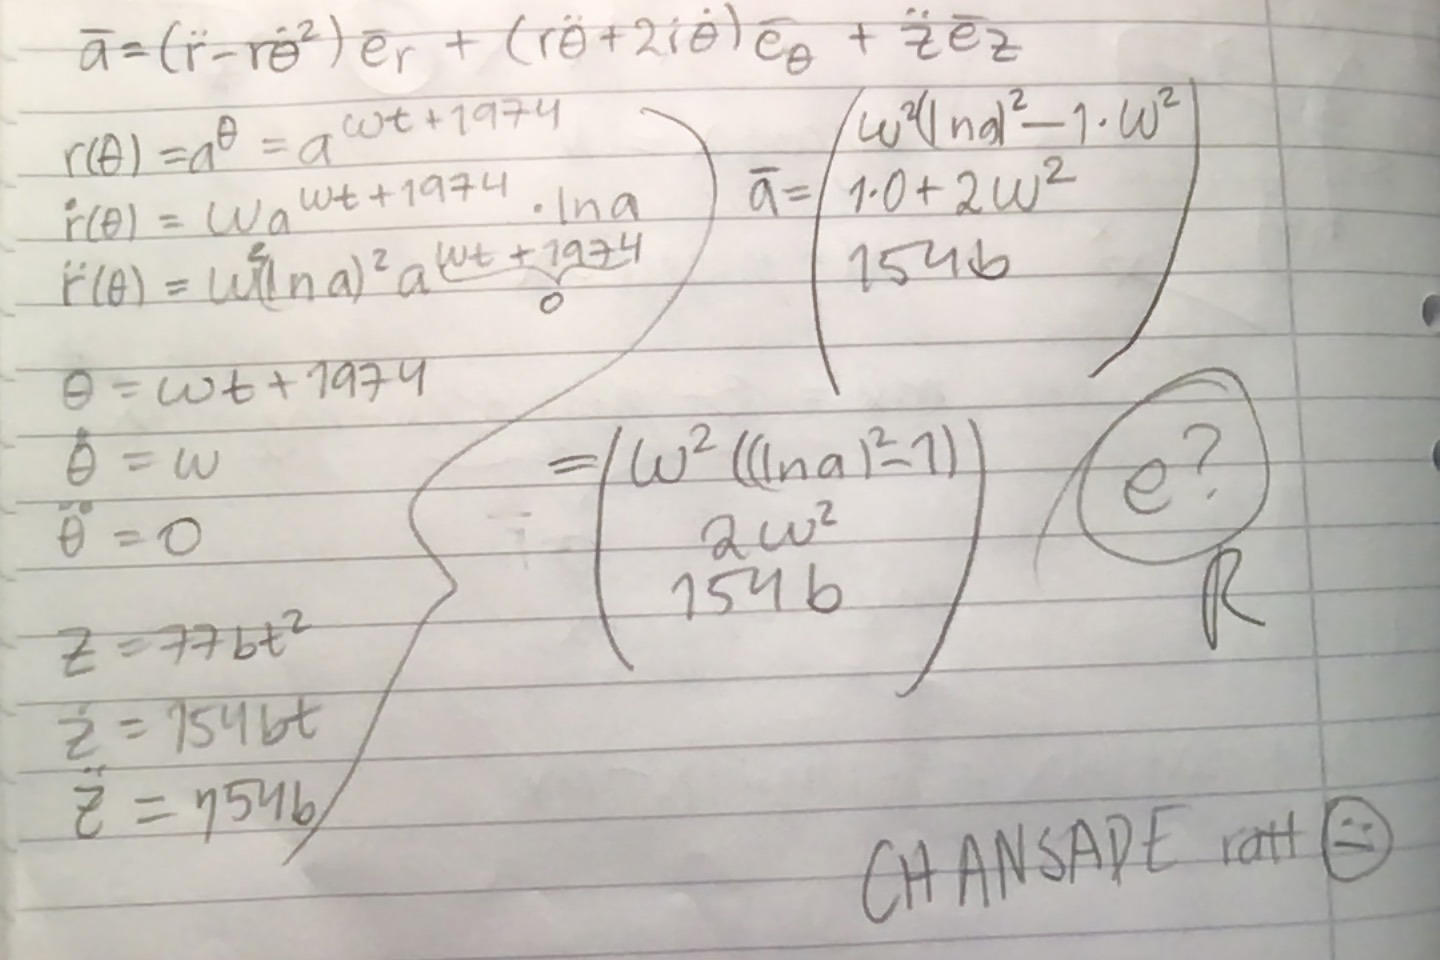 ā = (r̈ - rθ̇²) ēr + (rθ̈ + 2ṙθ̇) ēθ + z̈ ēz
r(θ) = a^θ = a^(ωt + 1974)
ṙ(θ) = ωa^(ωt + 1974) · ln a
r̈(θ) = ω²(ln a)² a^(ωt + 1974)
0
θ = ωt + 1974
θ̇ = ω
θ̈ = 0
z = 77bt²
ż = 154bt
z̈ = 154b
ā = ( ω²(ln a)² - 1·ω²
1·0 + 2ω²
154b )
= ( ω²((ln a)² - 1)
2ω²
154b )
e?
R
CHANSADE rätt